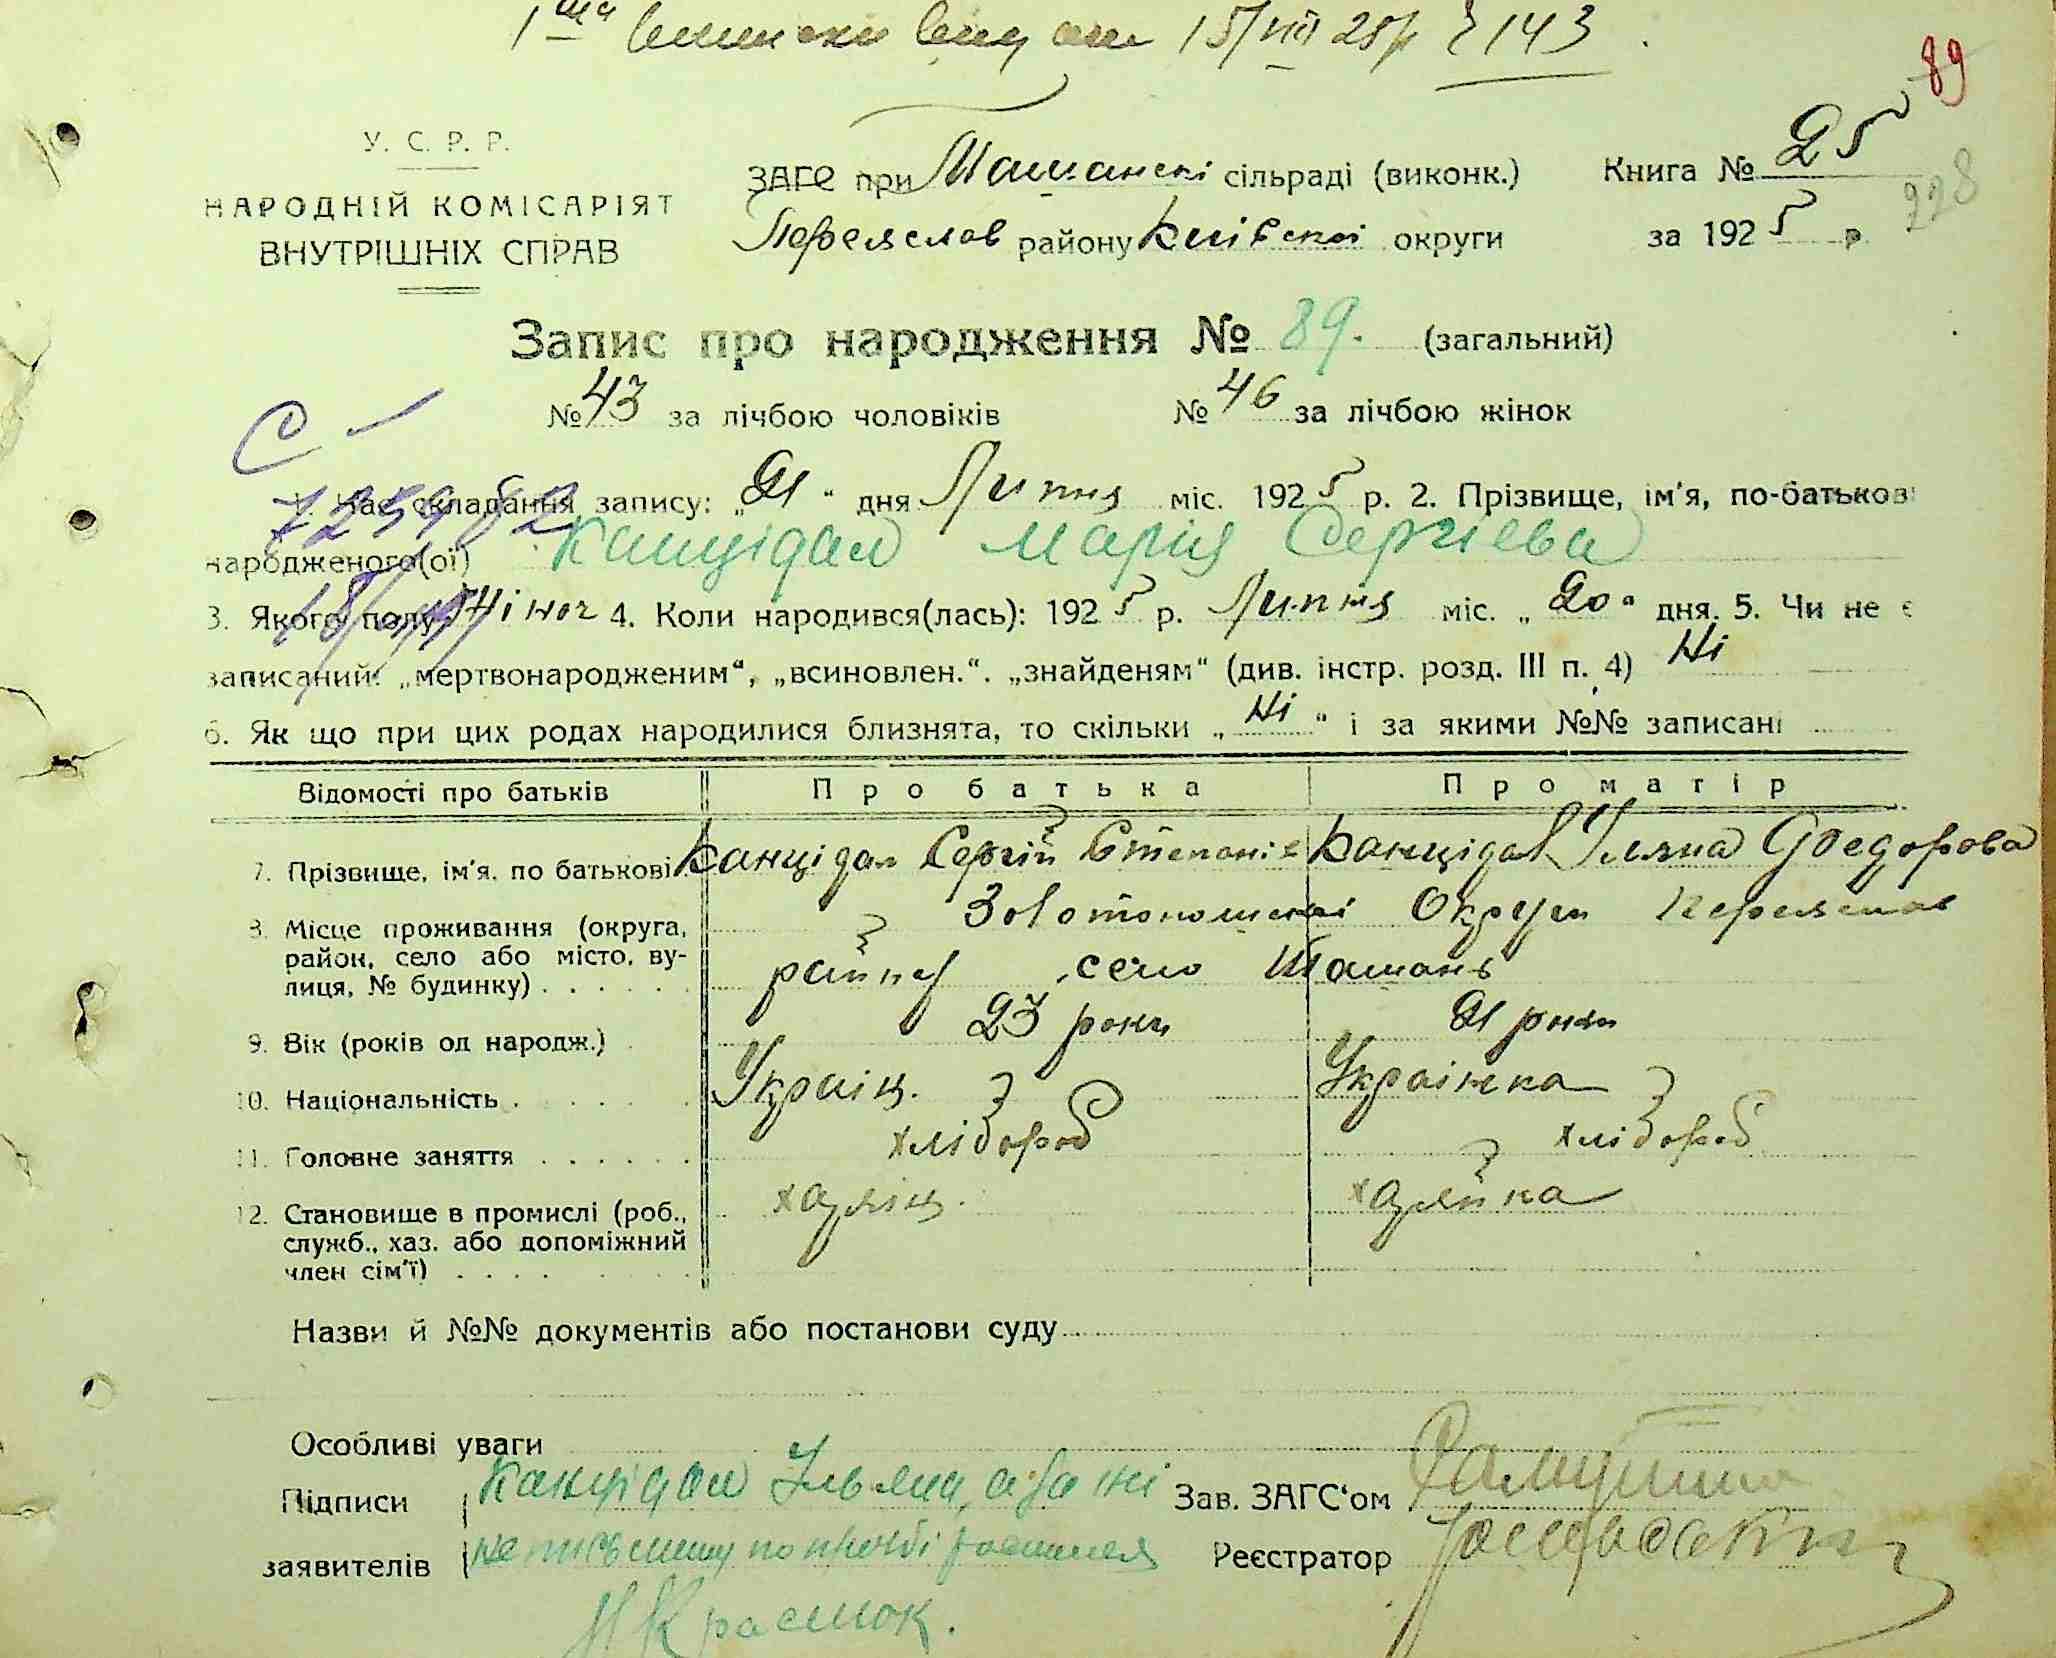 15/VII 25р № 143
89
У. С. Р. Р.
НАРОДНІЙ КОМІСАРІЯТ
ВНУТРІШНІХ СПРАВ
ЗАГС при Ташанскі сільраді (виконк.)
Переяслав району Київскої округи
Книга № 25
228
за 1925 р.
Запис про народження № 89. (загальний)
№ 43 за лічбою чоловіків № 46 за лічбою жінок
1. Час складання запису: „21“ дня Липня міс. 1925 р. 2. Прізвище, ім'я, по-батькові
народженого(ої) Канцідал Марія Сергіева
3. Якого полу Жіноч 4. Коли народився(лась): 1925 р. Липня міс. „20“ дня. 5. Чи не є
записаний: „мертвонародженим“, „всиновлен.“. „знайденям“ (див. інстр. розд. III п. 4) Ні
6. Як що при цих родах народилися близнята, то скільки „Ні“ і за якими №№ записані
Відомості про батьків Про батька Про матір
7. Прізвище, ім'я, по батькові Канцідал Сергій Степанів Канцідал Уляна Федорова
8. Місце проживання (округа, район, село або місто, вулиця, № будинку) Золотоношскі Округи Переяслав
району село Ташань
9. Вік (років од народж.) 23 роки 21 роки
10. Національність Україц. Українка
11. Головне заняття хлібороб хлібороб
12. Становище в промислі (роб., служб., хаз. або допоміжний член сім'ї) хазяїц. хазяйка
Назви й №№ документів або постанови суду
Особливі уваги
Підписи Канцідал Ульяна, а за ні Зав. ЗАГС'ом
заявителів неписьменну по прозьбі росписался Реєстратор
Красюк.